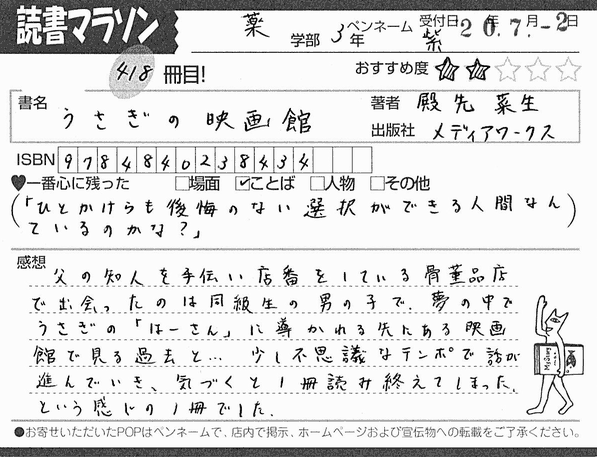 読書マラソン
薬 学部 3年 ペンネーム 紫 受付日 20年7月-2日
418 冊目! おすすめ度 ★★☆☆☆
書名 うさぎの映画館 著者 殿先菜生
出版社 メディアワークス
ISBN 9784840238434
♥一番心に残った □場面 ☑ことば □人物 □その他
(「ひとかけらも後悔のない選択ができる人間なん
ているのかな?」)
感想 父の知人を手伝い店番をしている骨董品店
で出会ったのは同級生の男の子で、夢の中で
うさぎの「はーさん」に導かれる先にある映画
館で見る過去と… 少し不思議なテンポで話が
進んでいき、気づくと1冊読み終えてしまった、
という感じの1冊でした.
●お寄せいただいたPOPはペンネームで、店内で掲示、ホームページおよび宣伝物への転載をご了承ください。